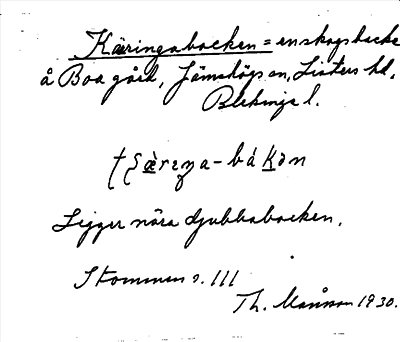 Käringabacken = en skogsbacke
å Boa gård, Jämshögs sn, Listers hd,
Blekinge l.
Ligger nära Gubbabacken.
Stommen s. 111
Th. Månsson 1930.